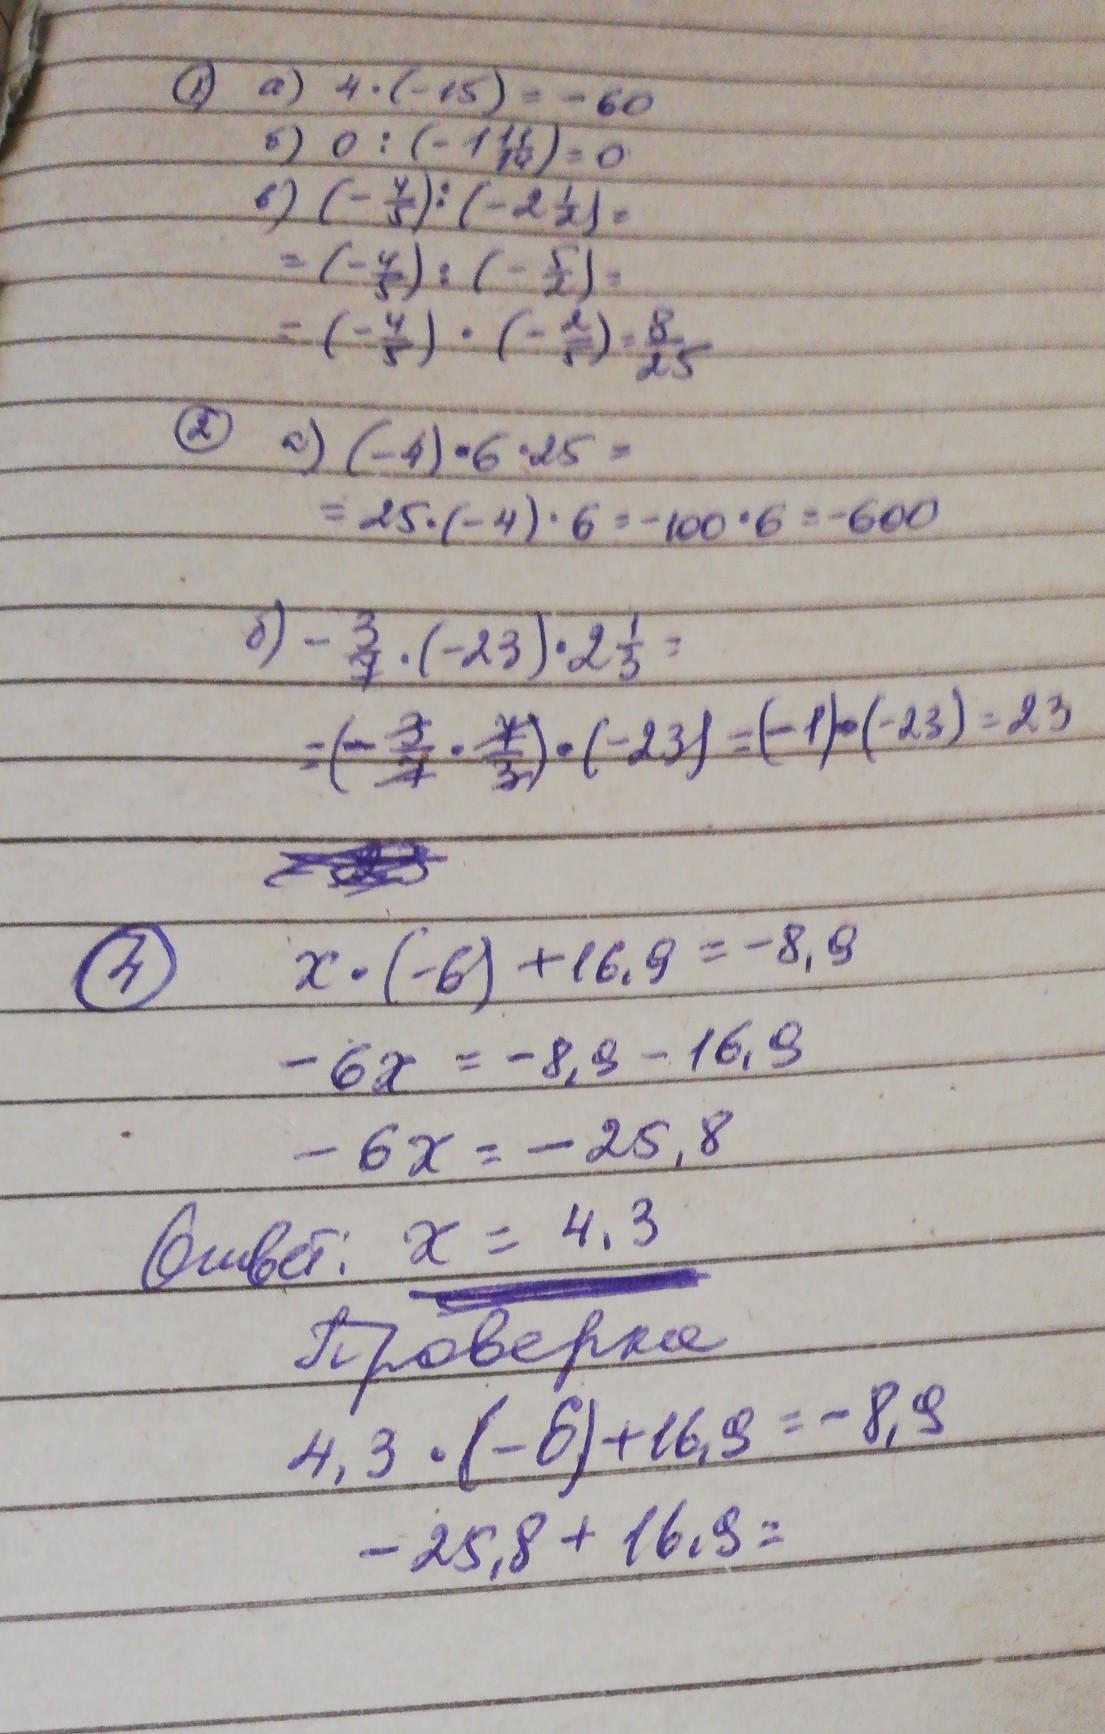 ① а) 4 · (-15) = -60
б) 0 : (-1 11/14) = 0
в) (-4/5) : (-2 1/2) =
= (-4/5) : (-5/2) =
= (-4/5) · (-2/5) = 8/25
② а) (-4) · 6 · 25 =
= 25 · (-4) · 6 = -100 · 6 = -600
б) -3/7 · (-23) · 2 1/3 =
= (-3/7 · 7/3) · (-23) = (-1) · (-23) = 23
x · (-6) + 16,9 = -8,9
-6x = -8,9 - 16,9
-6x = -25,8
Ответ: x = 4,3
Проверка
4,3 · (-6) + 16,9 = -8,9
-25,8 + 16,9 =